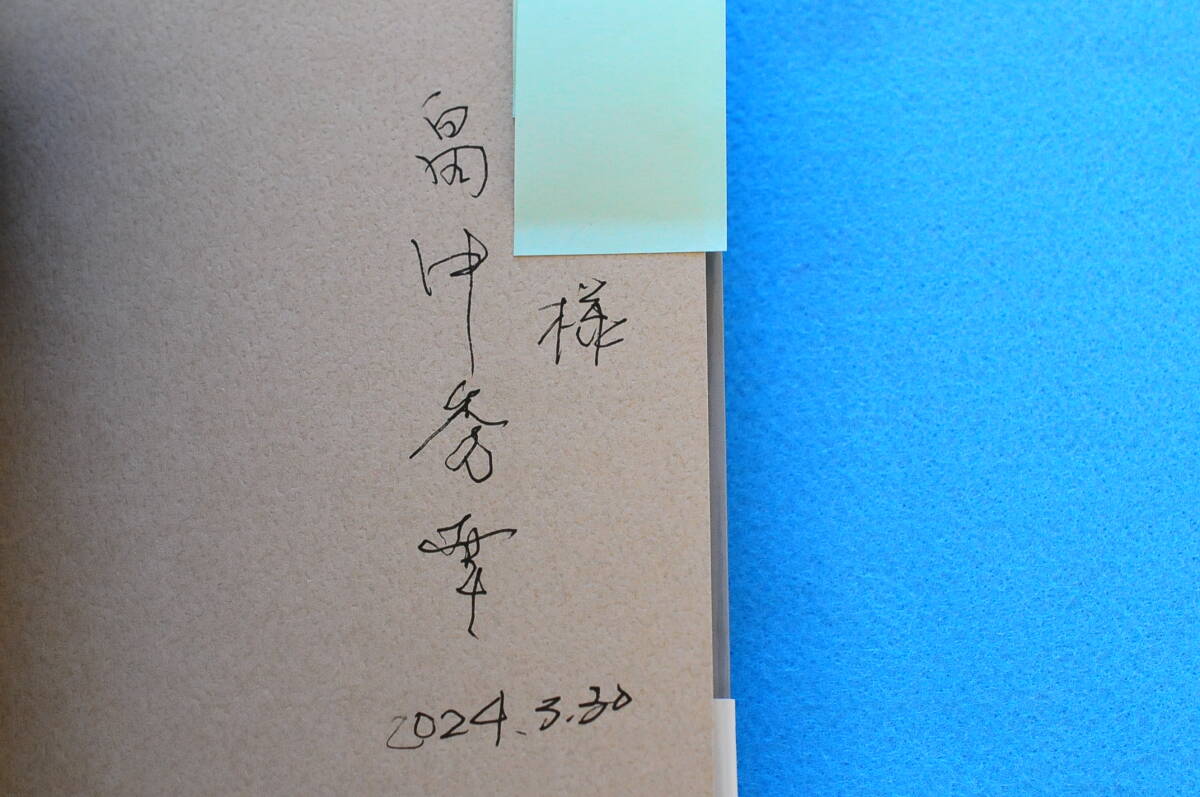 様
畠中秀幸
2024.3.30